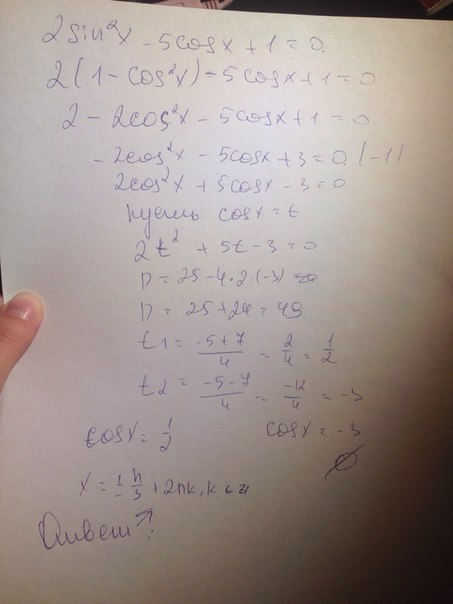 2sin²x - 5cosx + 1 = 0.
2(1 - cos²x) - 5cosx + 1 = 0
2 - 2cos²x - 5cosx + 1 = 0
- 2cos²x - 5cosx + 3 = 0 | (-1)
2cos²x + 5cosx - 3 = 0
пусть cosx = t
2t² + 5t - 3 = 0
D = 25 - 4·2·(-3) =
D = 25 + 24 = 49
t1 = (-5+7)/4 = 2/4 = 1/2
t2 = (-5-7)/4 = -12/4 = -3
cosx = 1/2 cosx = -3
∅
x = ± π/3 + 2πk, k ∈ z.
Ответ ↗?